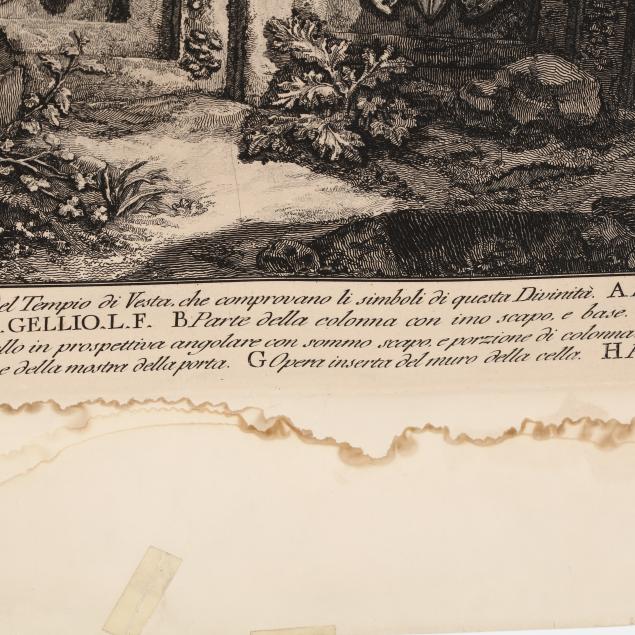 el Tempio di Vesta, che comprovano li simboli di questa Divinità. A.
.GELLIO.L.F. B Parte della colonna con imo scapo, e base.
llo in prospettiva angolare con sommo scapo, e porzione di colonna
e della mostra della porta. G Opera inserta del muro della cella. H